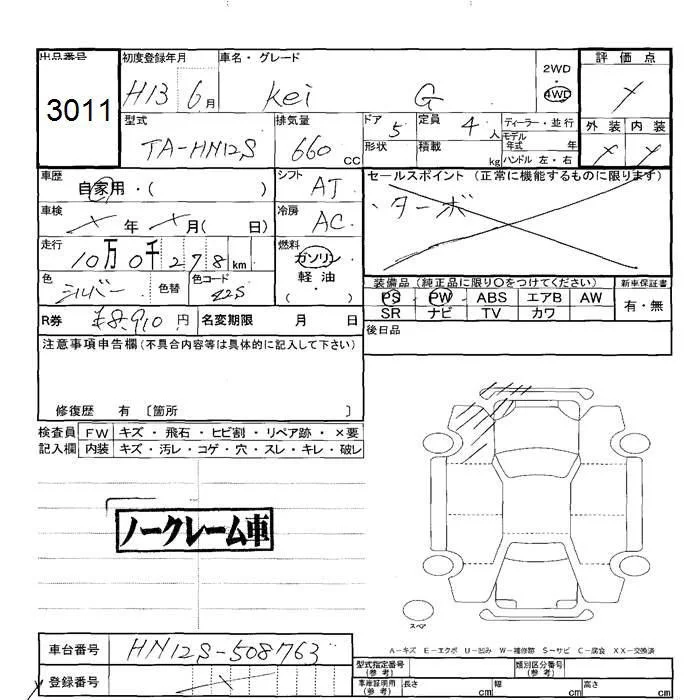 出品番号 初度登録年月 車名・グレード 2WD ・ 4WD 評価点
3011 H13 6月 Kei G
型式 排気量 ドア 5 定員 4人 ディーラー・並行 外装 内装
TA-HN12S 660 cc 形状 積載 kg モデル年式 年
ハンドル 左・右
車歴 自家用・( ) シフト AT セールスポイント (正常に機能するものに限ります)
車検 年 月( 日) 冷房 AC ・ターボ
走行 10万0千278km 燃料 ガソリン・軽油・( )
色 シルバー 色替 色コード Z2S 装備品 (純正品に限り○をつけてください) 新車保証書
PS・PW・ABS エアB AW 有・無
SR ナビ TV カワ
R券 ¥8,910円 名変期限 月 日 後日品
注意事項申告欄(不具合内容等は具体的に記入して下さい)
修復歴 有 〔箇所 〕
検査員 FW キズ・飛石・ヒビ割・リペア跡・×要
記入欄 内装 キズ・汚レ・コゲ・穴・スレ・キレ・破レ
ノークレーム車
スペア
A-キズ E-エクボ U-凹み W-補修跡 S-サビ C-腐食 XX-交換済
車台番号 HN12S-508763 型式指定番号(参考) 類別区分番号(参考)
登録番号 車庫証明用(参考) 長さ cm 幅 cm 高さ cm